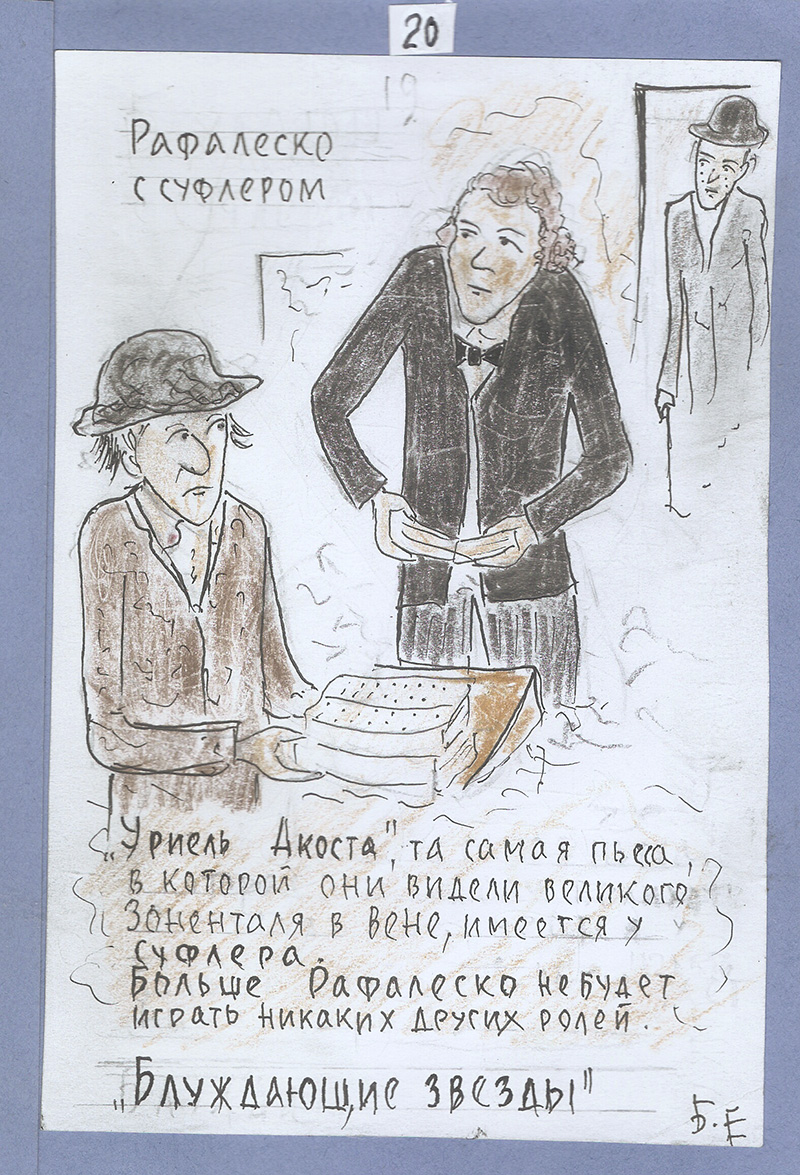 20
19
Рафалеско
с суфлером
„Уриель Акоста", та самая пьеса,
в которой они видели великого
Зоненталя в Вене, имеется у
суфлера.
Больше Рафалеско не будет
играть никаких других ролей.
„Блуждающие звезды"
Б.Е